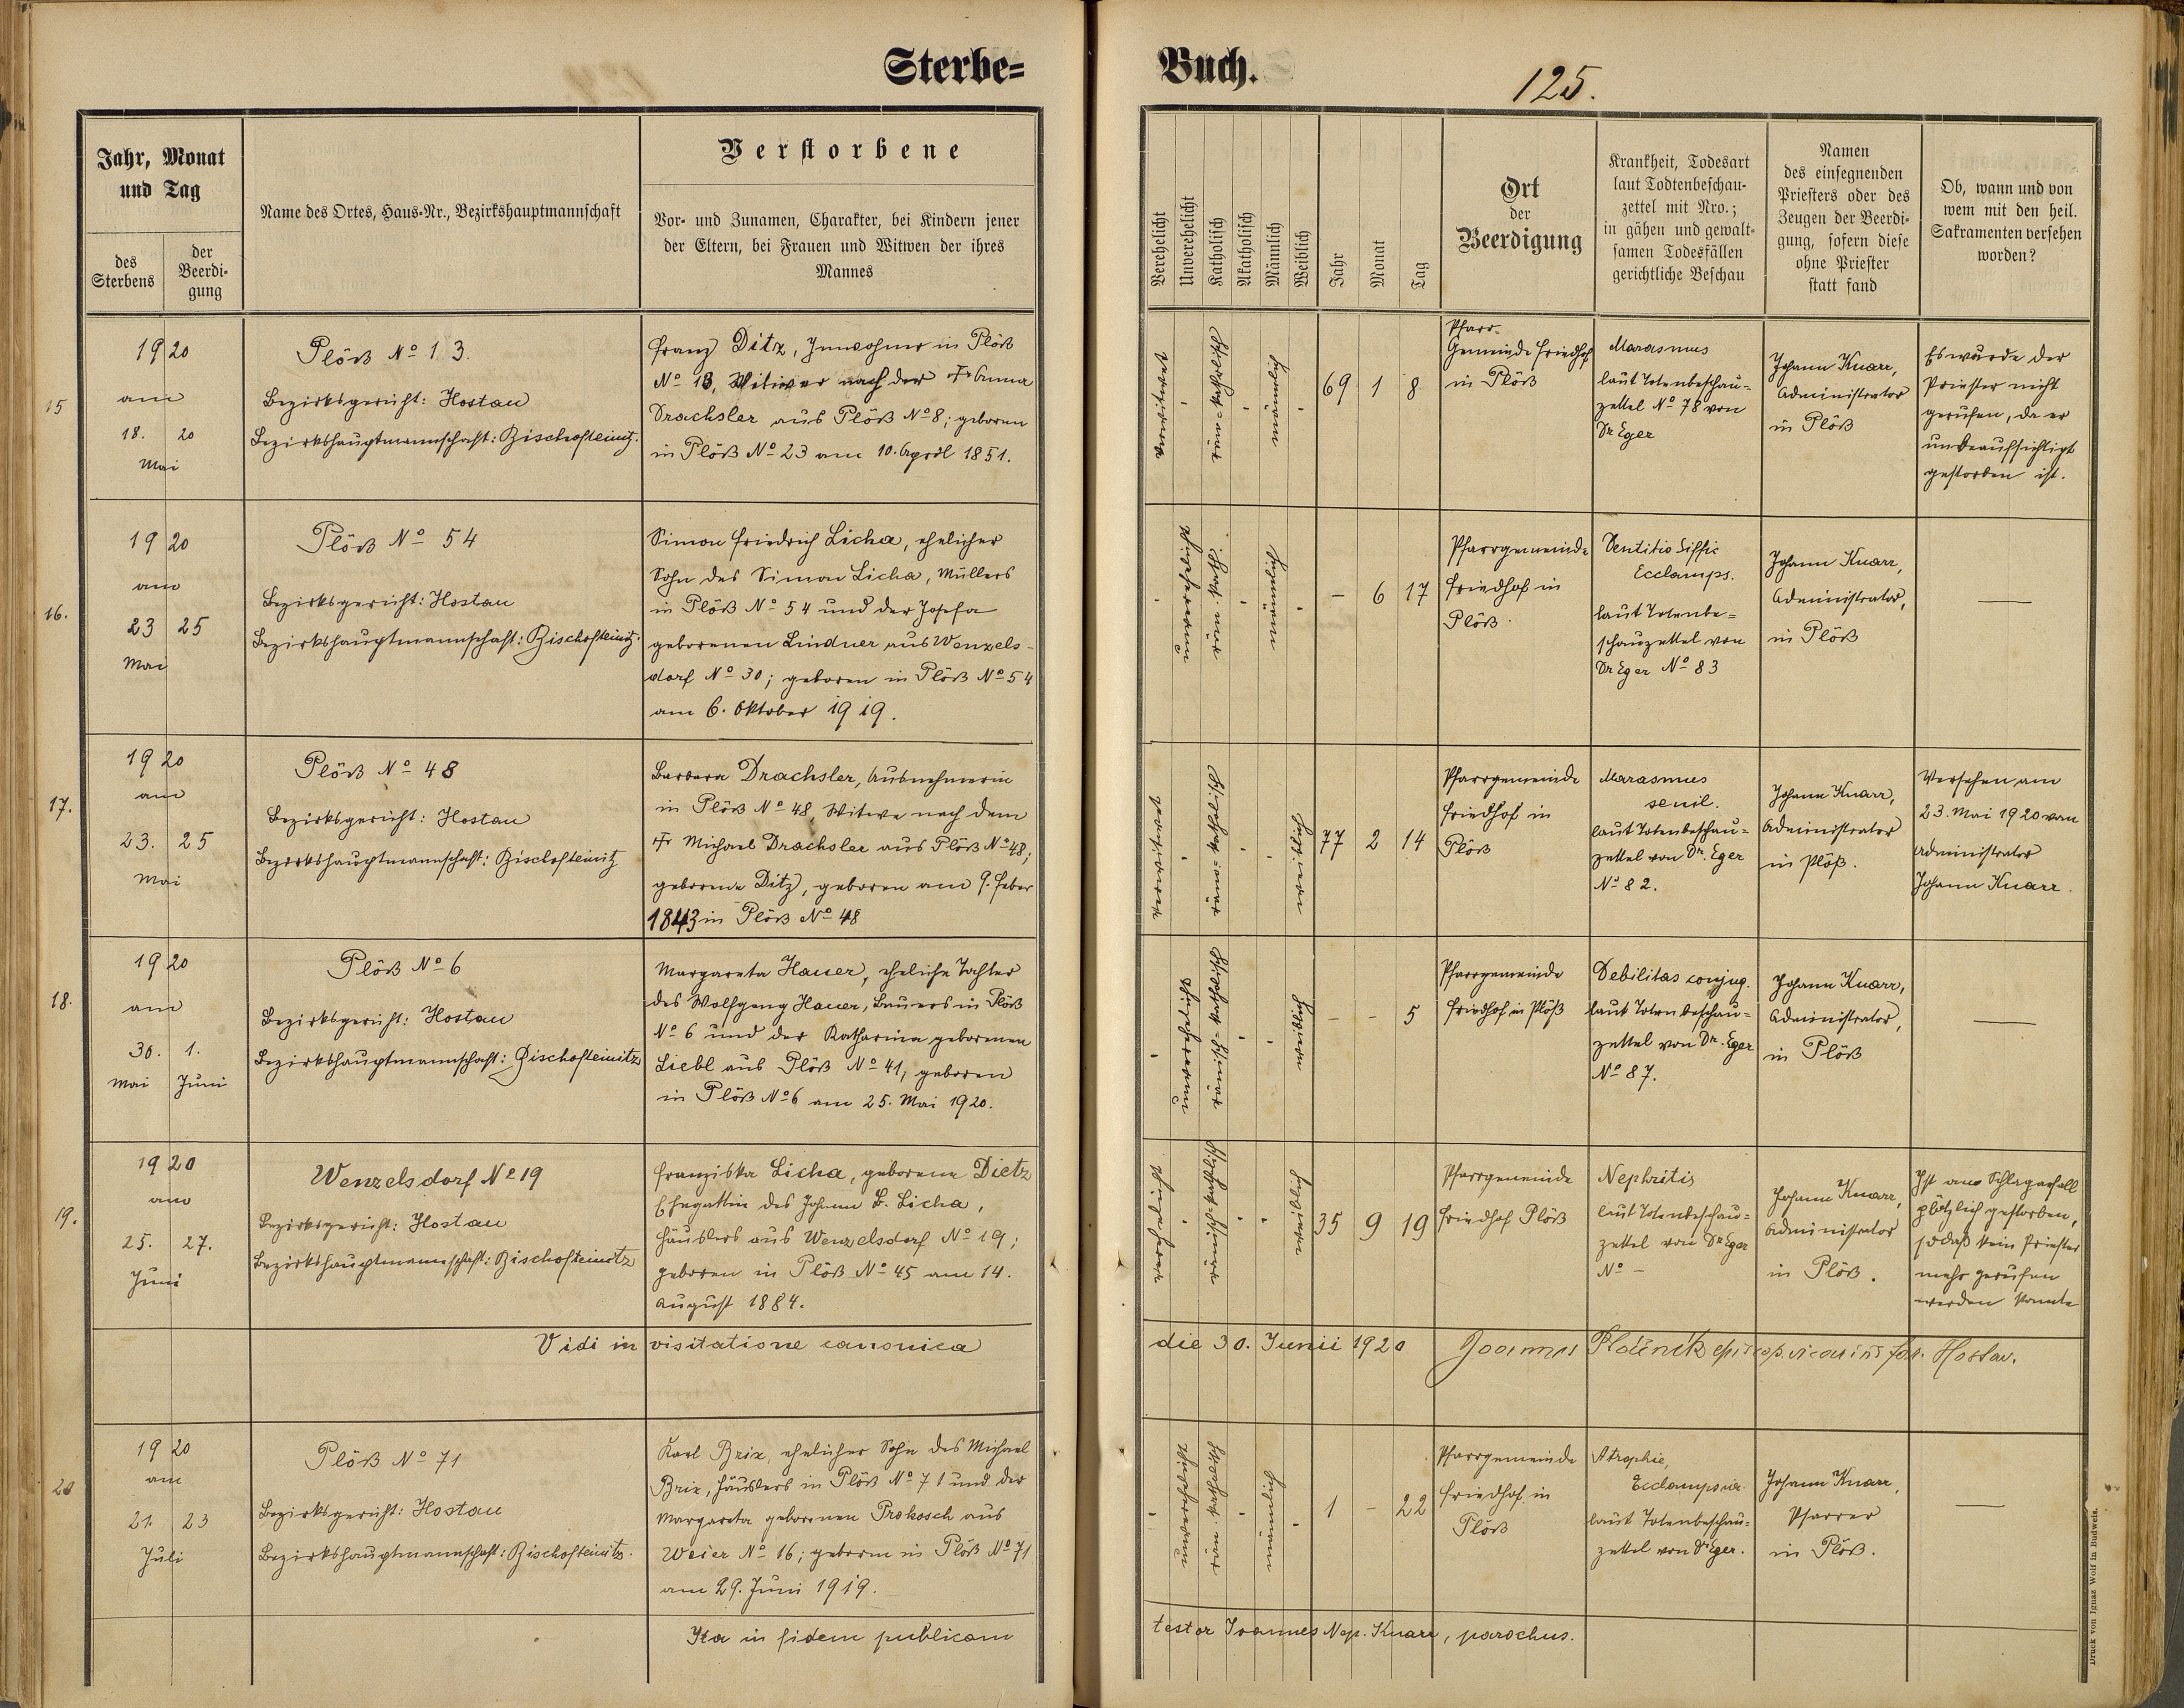 Sterbe=
Buch.
125.
Jahr, Monat
und Tag
des
Sterbens
der
Beerdi-
gung
Name des Ortes, Haus-Nr., Bezirkshauptmannschaft
Verstorbene
Vor- und Zunamen, Charakter, bei Kindern jener
der Eltern, bei Frauen und Witwen der ihres
Mannes
Verehelicht
Unverehelicht
Katholisch
Akatholisch
Männlich
Weiblich
Jahr
Monat
Tag
Ort
der
Beerdigung
Krankheit, Todesart
laut Todtenbeschau-
zettel mit Nro.;
in gähen und gewalt-
samen Todesfällen
gerichtliche Beschau
Namen
des einsegnenden
Priesters oder des
Zeugen der Beerdi-
gung, sofern diese
ohne Priester
statt fand
Ob, wann und von
wem mit den heil.
Sakramenten versehen
worden?
15
1920
am
18. 20
Mai
Plöß No 13.
Bezirksgericht: Hostau
Bezirkshauptmannschaft: Bischofteinitz.
Franz Ditz, Inwohner in Plöß
No 13, Witwer nach der + Anna
Drachsler aus Plöß No 8; geboren
in Plöß No 23 am 10. April 1851.
verwitwet
-
röm=katholisch
-
männlich
-
69 1 8
Pfarr-
Gemeinde Friedhof
in Plöß
Marasmus
laut Totenbeschau=
zettel No 78 von
Dr Eger
Johann Knarr,
Administrator
in Plöß
Es wurde der
Priester nicht
gerufen, da er
unbeaufsichtigt
gestorben ist.
16.
1920
am
23 25
Mai
Plöß No 54
Bezirksgericht: Hostau
Bezirkshauptmannschaft: Bischofteinitz.
Simon Friedrich Licha, ehelicher
Sohn des Simon Licha, Müllers
in Plöß No 54 und der Josefa
geborenen Lindner aus Wenzels-
dorf No 30; geboren in Plöß No 54
am 6. Oktober 1919.
-
unverehelicht
röm. kath.
-
männlich
-
- 6 17
Pfarrgemeinde
Friedhof in
Plöß.
Dentitio diffic
Ecclamps.
laut Totenbe=
schauzettel von
Dr Eger No 83
Johann Knarr,
Administrator,
in Plöß
—
17.
1920
am
23. 25
Mai
Plöß No 48
Bezirksgericht: Hostau
Bezirkshauptmannschaft: Bischofteinitz
Barbara Drachsler, Ausnehmerin
in Plöß No 48, Witwe nach dem
+ Michael Drachsler aus Plöß No 48;
geborene Ditz, geboren am 9. Feber
1843 in Plöß No 48
verwitwet
-
röm=katholisch
-
-
weiblich
77 2 14
Pfarrgemeinde
Friedhof in
Plöß
Marasmus
senil.
laut Totenbeschau=
zettel von Dr. Eger
No 82.
Johann Knarr,
Administrator
in Plöß.
Versehen am
23. Mai 1920 vom
Administrator
Johann Knarr.
18.
1920
am
30. 1.
Mai Juni
Plöß No 6
Bezirksgericht: Hostau
Bezirkshauptmannschaft: Bischofteinitz
Margareta Hauer, eheliche Tochter
des Wolfgang Hauer, Bauers in Plöß
No 6 und der Katharina geborenen
Liebl aus Plöß No 41; geboren
in Plöß No 6 am 25. Mai 1920.
-
unverehelicht
römisch=katholisch
-
-
weiblich
- - 5
Pfarrgemeinde
Friedhof in Plöß
Debilitas conjug.
laut Totenbeschau=
zettel von Dr. Eger
No 87.
Johann Knarr,
Administrator,
in Plöß
—
19.
1920
am
25. 27.
Juni
Wenzelsdorf No 19
Bezirksgericht: Hostau
Bezirkshauptmannschaft: Bischofteinitz
Franziska Licha, geborene Dietz
Ehegattin des Johann B. Licha,
Häuslers aus Wenzelsdorf No 19;
geboren in Plöß No 45 am 14.
August 1884.
verehelicht
-
römisch=katholisch
-
-
weiblich
35 9 19
Pfarrgemeinde
Friedhof Plöß
Nephritis
laut Totenbeschau=
zettel von Dr Eger
No -
Johann Knarr,
Administrator
in Plöß.
Ist am Schlaganfall
plötzlich gestorben,
sodaß kein Priester
mehr gerufen
werden konnte
Vidi in visitatione canonica die 30. Junii 1920 Joannes vicarius for. Hostau.
20
1920
am
21. 23
Juli
Plöß No 71
Bezirksgericht: Hostau
Bezirkshauptmannschaft: Bischofteinitz.
Karl Brix, ehelicher Sohn des Michael
Brix, Häuslers in Plöß No 71 und der
Margareta geborenen Prokosch aus
Weier No 16; geboren in Plöß No 71
am 29. Juni 1919.
-
unverehelicht
röm. katholisch
-
männlich
-
1 - 22
Pfarrgemeinde
Friedhof in
Plöß
Atrophie,
Ecclampsia.
laut Totenbeschau=
zettel von Dr Eger.
Johann Knarr,
Pfarrer
in Plöß.
—
Ita in fidem publicam testor Joannes Nep. Knarr, parochus.
Druck von Ignaz Wolf in Budweis.